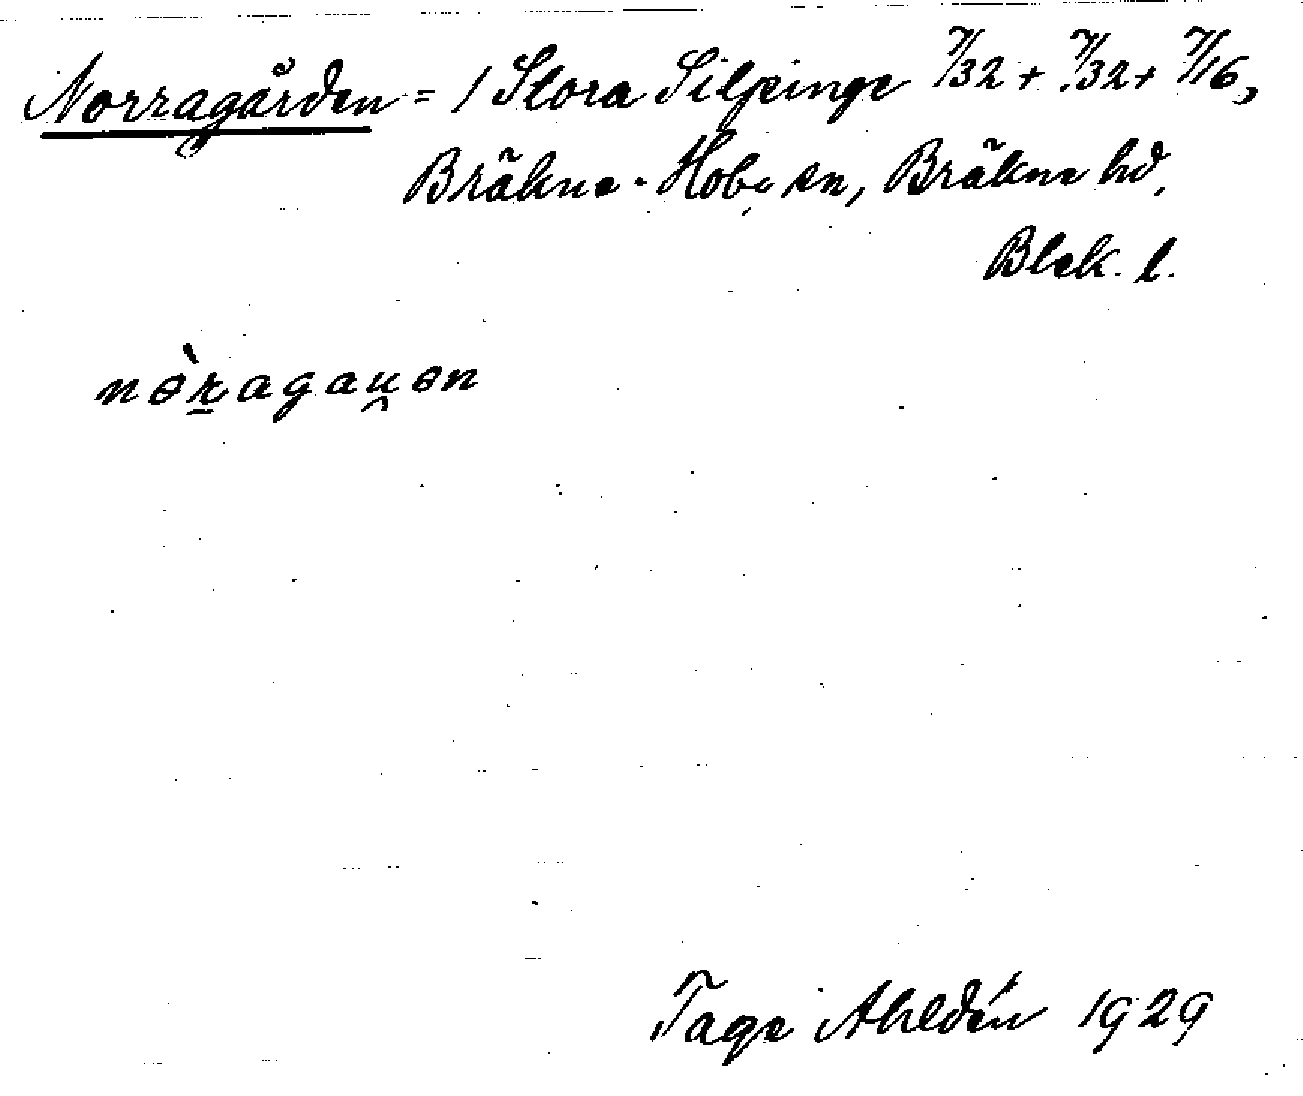 Norragården = 1 Stora Silpinge 7/32 + 7/32 + 7/16,
Bräkne-Hoby sn, Bräkne hd,
Blek. l.
nɵ̀ṟagau̯ɵn
Tage Ahldén 1929